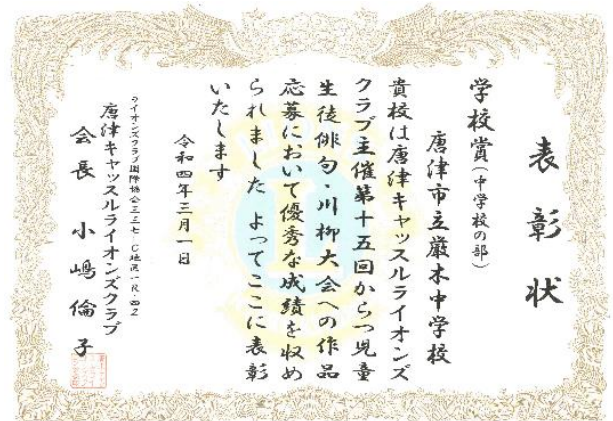 表彰状
学校賞(中学校の部)
唐津市立厳木中学校
貴校は唐津キャッスルライオンズ
クラブ主催第十五回からつ児童
生徒俳句・川柳大会への作品
応募において優秀な成績を収め
られました よってここに表彰
いたします
令和四年三月一日
ライオンズクラブ国際協会三三七-C地区一R・四Z
唐津キャッスルライオンズクラブ
会長 小嶋倫子